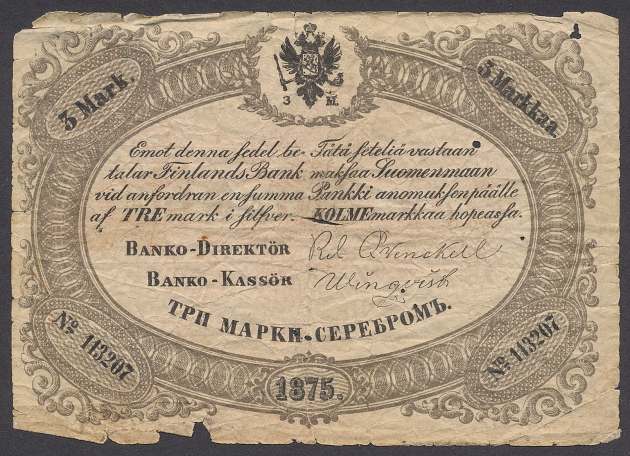 3 Mark.
3 Markkaa.
3 M.
Emot denna sedel be-
talar Finlands Bank
vid anfordran en summa
af TRE mark i silfver.
Tätä seteliä vastaan
maksaa Suomenmaan
Pankki anomuksenpäälle
KOLME markkaa hopeassa.
BANKO-DIREKTÖR
BANKO-KASSÖR Winqvist
ТРИ МАРКИ СЕРЕБРОМЪ.
No. 113207
No. 113207
1875.